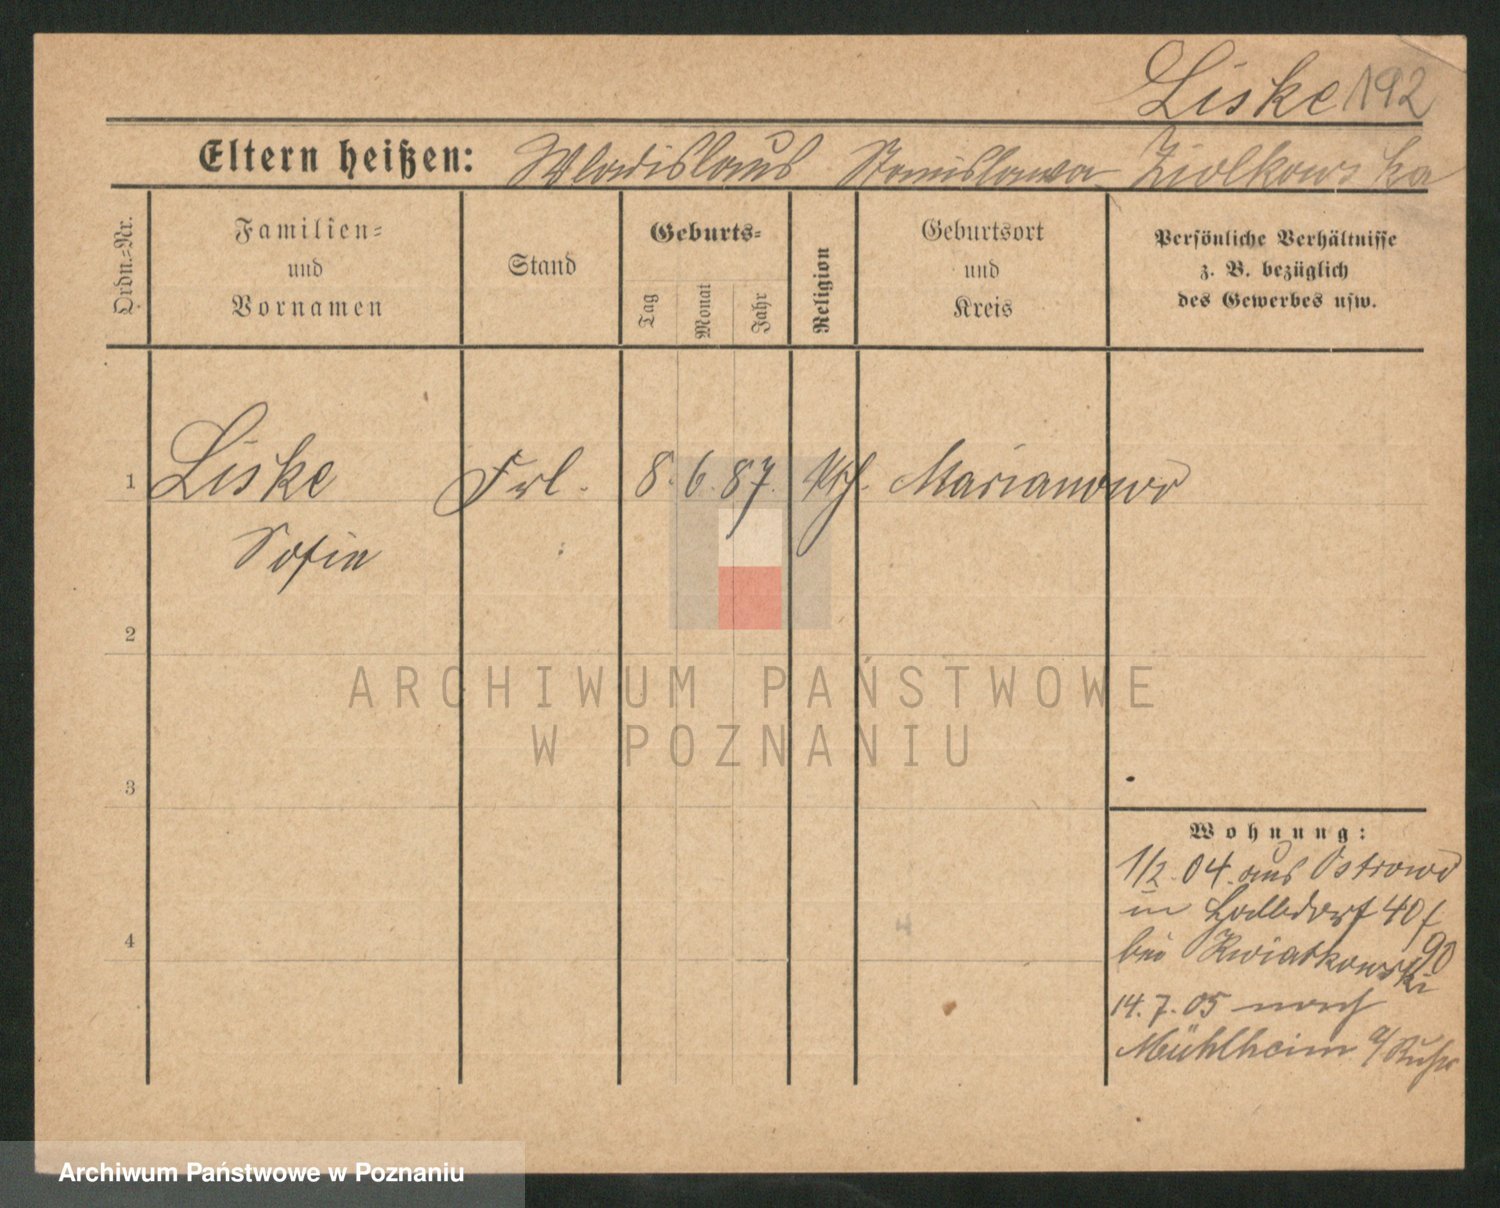 Liske 192
Eltern heißen: Wladislaus Stanislawa Ziolkowska
Ordn.-Nr.
Familien-
und
Vornamen
Stand
Geburts-
Tag
Monat
Jahr
Religion
Geburtsort
und
Kreis
Persönliche Verhältnisse
z. B. bezüglich
des Gewerbes usw.
1 Liske Frl. 8. 6. 87. kth. Marianowo
Sofie
2
3
4
Wohnung:
1/2. 04. aus Ostrowo
in 40
bei Kwiatkowski
14. 7. 05 nach
Mühlheim a/Ruhr
ARCHIWUM PAŃSTWOWE
W POZNANIU
Archiwum Państwowe w Poznaniu